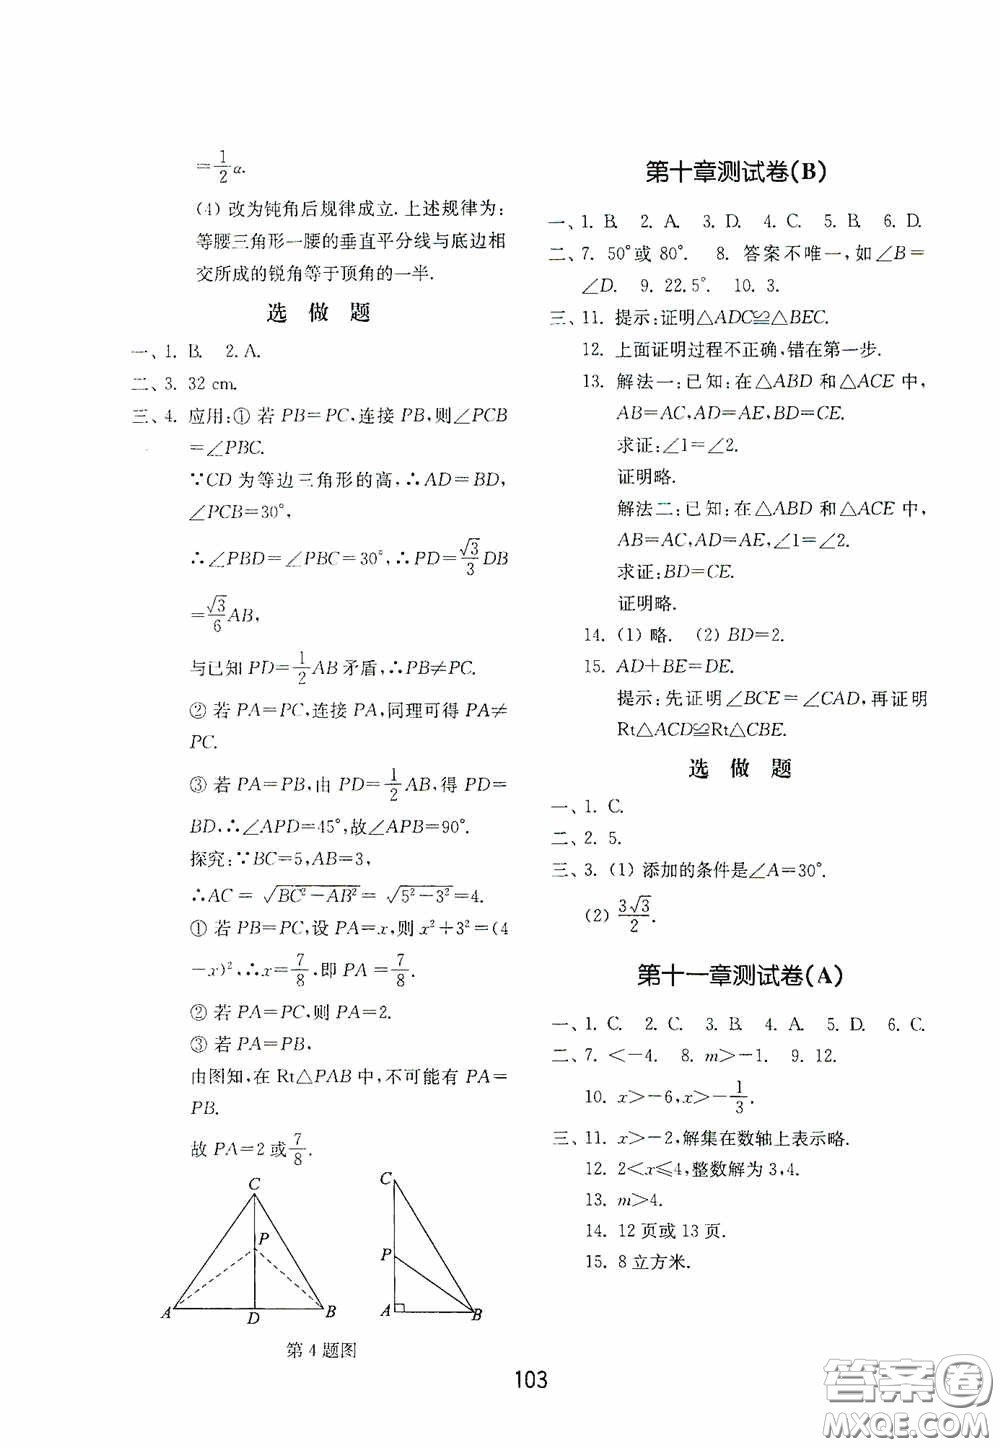 =1/2 α.
(4) 改为钝角后规律成立. 上述规律为:
等腰三角形一腰的垂直平分线与底边相
交所成的锐角等于顶角的一半.
选 做 题
一、1. B. 2. A.
二、3. 32 cm.
三、4. 应用:① 若 PB=PC,连接 PB,则∠PCB
=∠PBC.
∵CD 为等边三角形的高,∴AD=BD,
∠PCB=30°,
∴∠PBD=∠PBC=30°,∴PD=√3/3 DB
=√3/6 AB,
与已知 PD=1/2 AB 矛盾,∴PB≠PC.
② 若 PA=PC,连接 PA,同理可得 PA≠
PC.
③ 若 PA=PB,由 PD=1/2 AB,得 PD=
BD,∴∠APD=45°,故∠APB=90°.
探究:∵BC=5,AB=3,
∴AC=√(BC²-AB²)=√(5²-3²)=4.
① 若 PB=PC,设 PA=x,则 x²+3²=(4
-x)²,∴x=7/8,即 PA=7/8.
② 若 PA=PC,则 PA=2.
③ 若 PA=PB,
由图知,在 Rt△PAB 中,不可能有 PA=
PB.
故 PA=2 或 7/8.
C
P
A D B
C
P
A B
第 4 题图
第十章测试卷(B)
一、1. B. 2. A. 3. D. 4. C. 5. B. 6. D.
二、7. 50°或 80°. 8. 答案不唯一,如∠B=
∠D. 9. 22.5°. 10. 3.
三、11. 提示:证明△ADC≌△BEC.
12. 上面证明过程不正确,错在第一步.
13. 解法一:已知:在△ABD 和△ACE 中,
AB=AC,AD=AE,BD=CE.
求证:∠1=∠2.
证明略.
解法二:已知:在△ABD 和△ACE 中,
AB=AC,AD=AE,∠1=∠2.
求证:BD=CE.
证明略.
14. (1) 略. (2) BD=2.
15. AD+BE=DE.
提示:先证明∠BCE=∠CAD,再证明
Rt△ACD≌Rt△CBE.
选 做 题
一、1. C.
二、2. 5.
三、3. (1) 添加的条件是∠A=30°.
(2) 3√3/2.
第十一章测试卷(A)
一、1. C. 2. C. 3. B. 4. A. 5. D. 6. C.
二、7. <-4. 8. m>-1. 9. 12.
10. x>-6,x>-1/3.
三、11. x>-2,解集在数轴上表示略.
12. 2<x≤4,整数解为 3,4.
13. m>4.
14. 12 页或 13 页.
15. 8 立方米.
103
答案圈
MXQE.COM